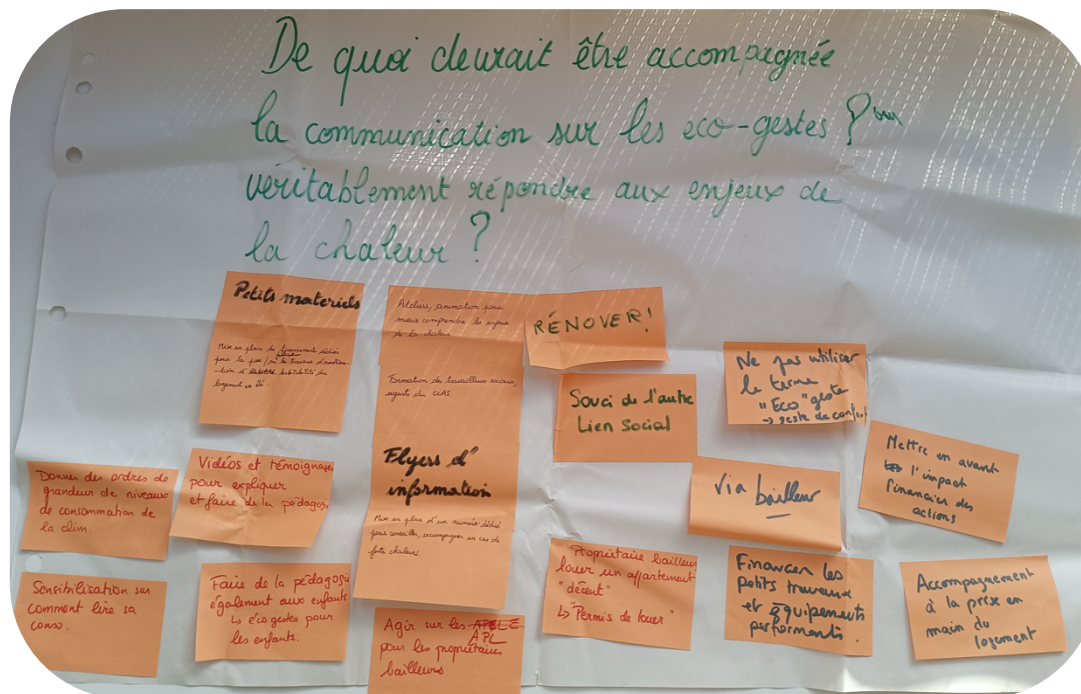 De quoi devrait être accompagnée
la communication sur les eco-gestes pour
véritablement répondre aux enjeux de
la chaleur ?
Petits materiels
Mise en place de financements dédiés
pour la pose / les travaux d'amélio-
-ration d' habitabilité du
logement en été.
Ateliers, animation pour
mieux comprendre les enjeux
de la chaleur
Formation des travailleurs sociaux,
agents du CCAS
Flyers d'
information
Mise en place d'un numéro dédié
pour conseiller, accompagner en cas de
fortes chaleurs
RÉNOVER!
Souci de l'autre
Lien social
Ne pas utiliser
le terme
"Eco" geste
→ geste de confort
Mettre en avant
l'impact
financier des
actions
Donner des ordres de
grandeur de niveaux
de consommation de
la clim.
Vidéos et témoignages
pour expliquer
et faire de la pédagogie
Via bailleur
Sensibilisation sur
comment lire sa
conso.
Faire de la pédagogie
également aux enfants
↳ éco gestes pour
les enfants.
Agir sur les APELE
APL
pour les propriétaires
bailleurs
Propriétaire bailleur
louer un appartement
"décent"
↳ "Permis de louer"
Financer les
petits travaux
et équipements
performants.
Accompagnement
à la prise en
main du
logement